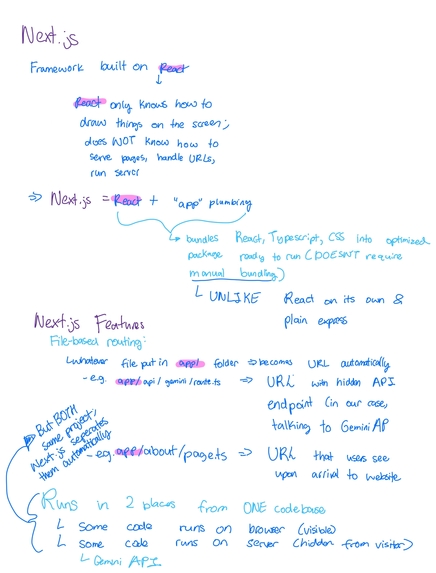 Next.js
Framework built on React
React only knows how to
draw things on the screen;
does NOT know how to
serve pages, handle URLs,
run server
⇒ Next.js = React + "app" plumbing
bundles React, Typescript, CSS into optimized
package ready to run (DOESNT require
manual bundling)
UNLIKE React on its own &
plain express
Next.js Features
File-based routing:
whatever file put in app/ folder ⇒ becomes URL automatically
- e.g. app/api/gemini/route.ts ⇒ URL with hidden API
endpoint (in our case,
talking to Gemini AP
- eg. app/about/page.ts ⇒ URL that users see
upon arrival to website
But BOTH
same project;
Next.js seperates
them automatically
Runs in 2 places from ONE codebase
some code runs on browser (visible)
some code runs on server (hidden from visitor)
Gemini API